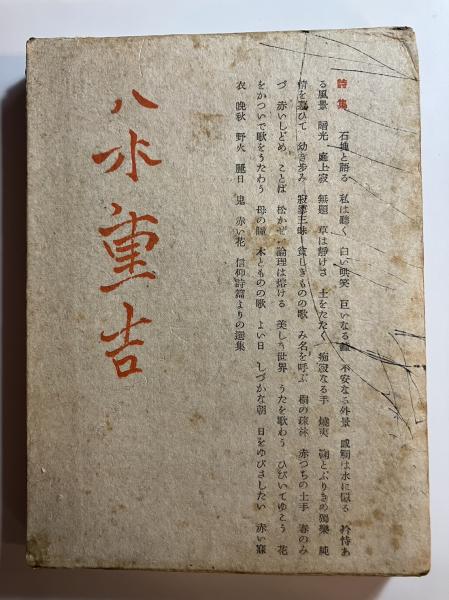 詩集 石塊と語る 私は聽く 白い哄笑 巨いなる鐘 不安なる外景 感觸は水に似る 矜恃あ
る風景 曙光 庭上寂 無題 草は靜けさ 土をたたく 痴寂なる手 燒夷 鞠とぶりきの獨樂 純
情を慕ひて 幼き步み 寂寥三昧 貧しきものの歌 み名を呼ぶ 桐の疎林 赤つちの土手 春のみ
づ 赤いしどめ ことば 松かぜ 論理は熔ける 美しき世界 うたを歌わう ひびいてゆこう 花
をかついで歌をうたわう 母の瞳 木とものの歌 よい日 しづかな朝 日をゆびさしたい 赤い寢
衣 晩秋 野火 麗日 鬼 赤い花 信仰詩篇よりの選集
八木重吉